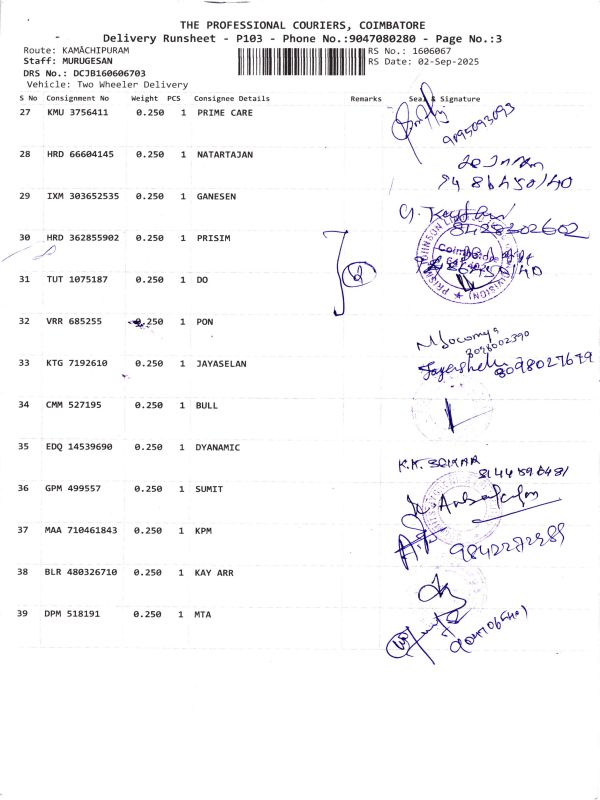 THE PROFESSIONAL COURIERS, COIMBATORE
Delivery Runsheet - P103 - Phone No.:9047080280 - Page No.:3
Route: KAMACHIPURAM RS No.: 1606067
Staff: MURUGESAN RS Date: 02-Sep-2025
DRS No.: DCJB160606703
Vehicle: Two Wheeler Delivery
S No Consignment No Weight PCS Consignee Details Remarks Seal & Signature
27 KMU 3756411 0.250 1 PRIME CARE
9195093093
28 HRD 66604145 0.250 1 NATARTAJAN
94 86450140
29 IXM 303652535 0.250 1 GANESEN
8428302602
30 HRD 362855902 0.250 1 PRISIM
31 TUT 1075187 0.250 1 DO
32 VRR 685255 0.250 1 PON
8098002390
33 KTG 7192610 0.250 1 JAYASELAN
8098027679
34 CMM 527195 0.250 1 BULL
35 EDQ 14539690 0.250 1 DYANAMIC
K.K. SEKAR
36 GPM 499557 0.250 1 SUMIT
37 MAA 710461843 0.250 1 KPM
9842272989
38 BLR 480326710 0.250 1 KAY ARR
39 DPM 518191 0.250 1 MTA